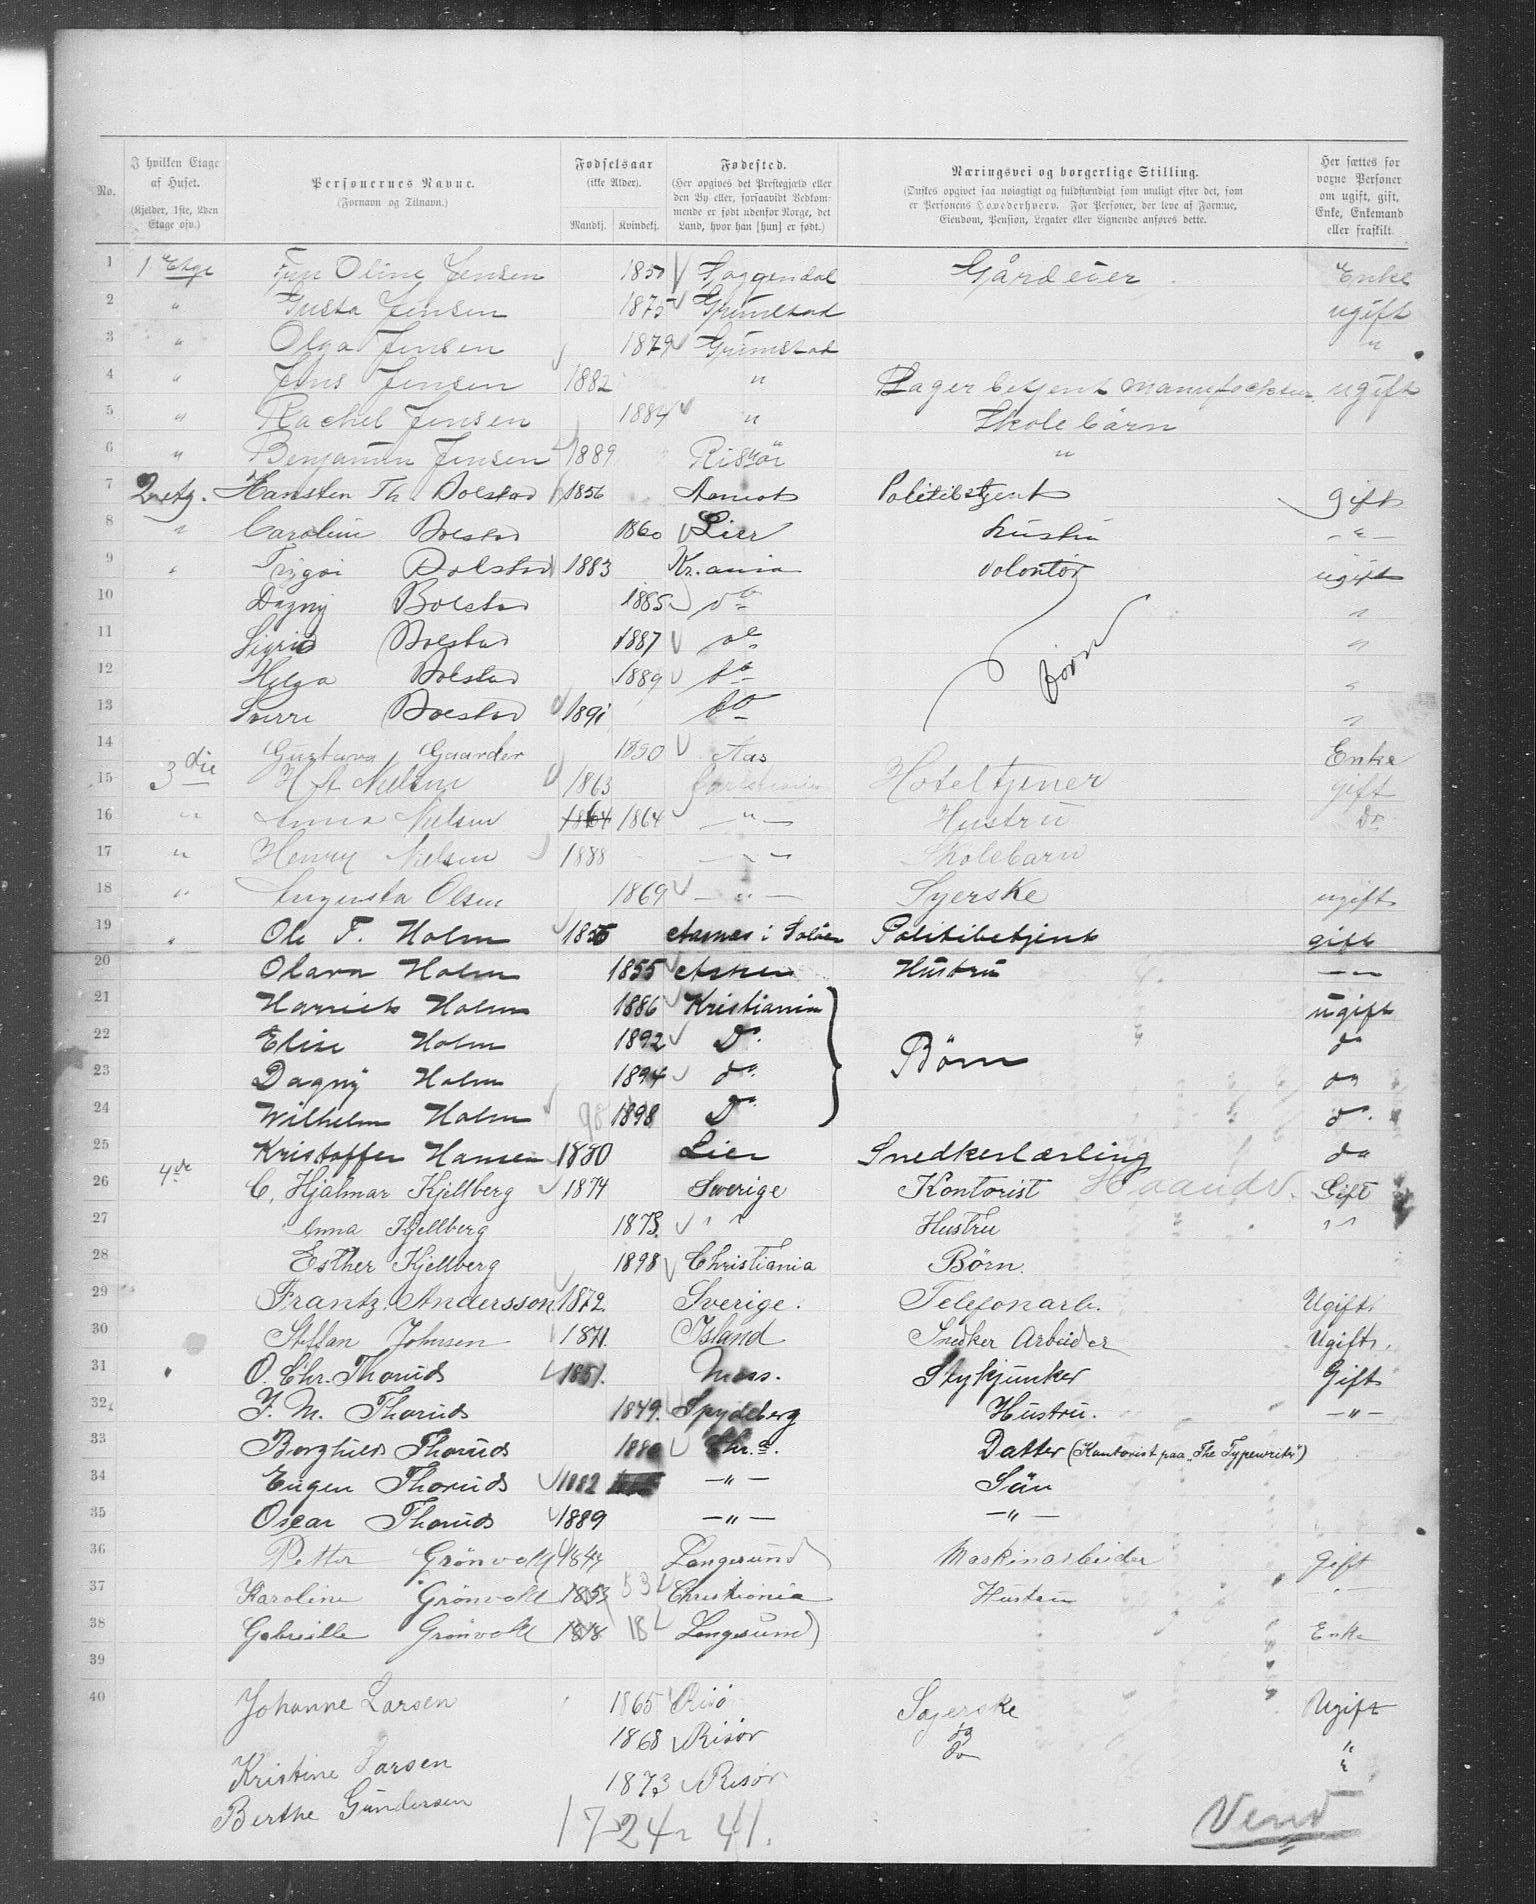 No.
I hvilken Etage af Huset.
(Kjelder, 1ste, 2den Etage osv.)
Personernes Navne.
(Fornavn og Tilnavn.)
Fødselsaar
(ikke Alder).
Mandkj. Kvindekj.
Fødested.
(Her opgives det Prestegjæld eller den By eller, forsaavidt Vedkommende er født udenfor Norge, det Land, hvor han [hun] er født.)
Næringsvei og borgerlige Stilling.
(Ønskes opgivet saa nøiagtigt og fuldstændigt som muligt efter det, som er Personens Hovederhverv. For Personer, der leve af Formue, Eiendom, Pension, Legater eller Lignende anføres dette.
Her sættes for vorne Personer om ugift, gift, Enke, Enkemand eller fraskilt.
1 1 Etge Oline Jensen Gårdeier Enke
2 " Gusta Jensen 1875 Grimstad ugift
3 " Olga Jensen 1879 Grimstad "
4 " Jens Jensen 1882 " Lagerbetjent manufaktur ugift
5 " Rachel Jensen 1884 " Skolebarn
6 " Benjamin Jensen 1889 Risør "
7 2 etg. Hansten Th. Bolstad 1856 Politibetjent gift
8 " Caroline Bolstad 1860 Lier hustru - " -
9 " Trygve Bolstad 1883 Kr.ania volontør ugift
10 Dagny Bolstad 1885 do "
11 Sigrid Bolstad 1887 do "
12 Helga Bolstad 1889 do Børn "
13 Sverre Bolstad 1891 do "
14 Gustava Gaarder 1850 Aas Enke
15 3die H A Nielsen 1863 Christiania Hoteltjener gift
16 " Anna Nielsen 1864 1864 - " - Hustru Do
17 " Henry Nielsen 1888 - " - Skolebarn
18 " Augusta Olsen 1869 - " - Syerske ugift
19 " Ole T. Holm 1855 Aasnes i Solør Politibetjent gift
20 Olava Holm 1855 Asker Hustru - " -
21 Harriet Holm 1886 Kristiania ugift
22 Elise Holm 1892 Do. Børn do
23 Dagny Holm 1894 do. do
24 Wilhelm Holm 98 1898 Do. do.
25 Kristoffer Hansen 1880 Lier Snedkerlærling do
26 4de C. Hjalmar Kjellberg 1874 Sverige Kontorist Haandv. Gift
27 Anna Kjellberg 1873. " " Hustru " "
28 Esther Kjellberg 1898 Christiania Børn.
29 Frantz Andersson 1872. Sverige. Telefonarb. Ugift
30 Steffan Johnsen 1871. Island Snedker Arbeider Ugift.
31 O. Chr. Thorud 1851. Moss. Stykjunker Gift
32 J. M. Thorud 1849. Spydeberg Hustru. - " -
33 Borghild Thorud 1880 Chr.a. Datter (Kontorist paa "The Typewriter")
34 Eugen Thorud 1882 - " - Sön
35 Oscar Thorud 1889 - " - - " -
36 Petter Grönvold Langesund Maskinarbeider gift
37 Karoline Grönvold 1853 53 Christiania Hustru " -
38 Gabrielle Grönvold 1818 18 Langesund Enke
39
40 Johanne Larsen 1865 Risø Syerske Ugift
Kristine Larsen 1868 Risør do "
Berthe Gundersen 1873 Risør do "
17 - 24 = 41.
Vend